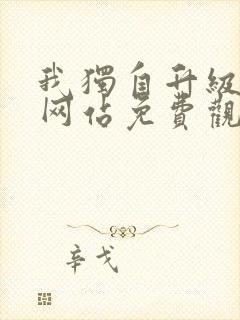 我獨自升級
网佔免費觀
辛戈